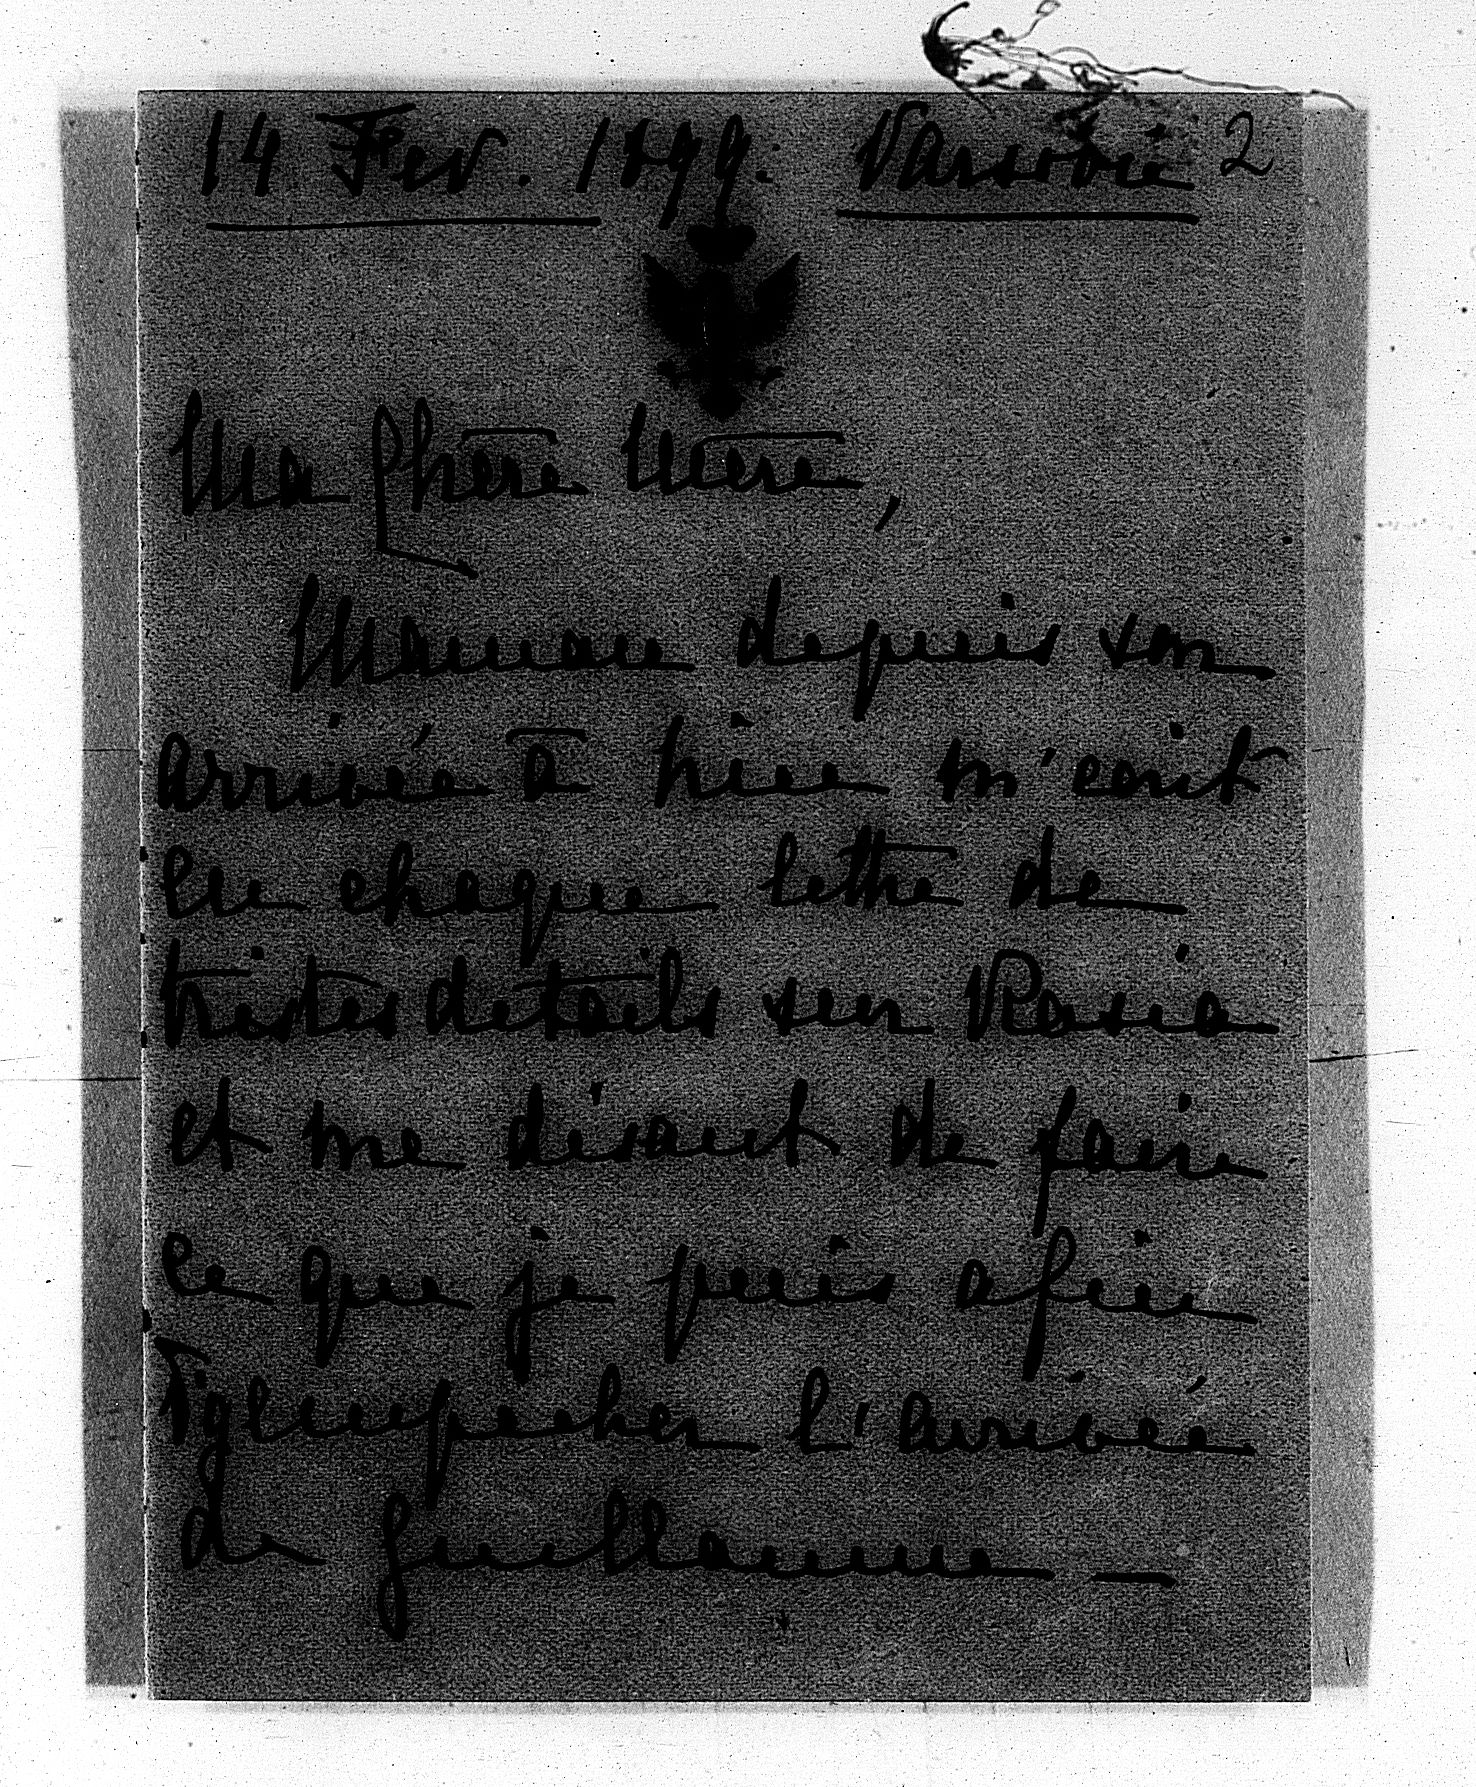 14 Fev. 1899. Varsovie 2
Ma Chère Mère,
Maman depuis son
arrivée à Nice m'ecrit
en chaque lettre de
tristes details sur
et me disant de faire
ce que je puis afin
empecher l'arrivée
de Guillaume —